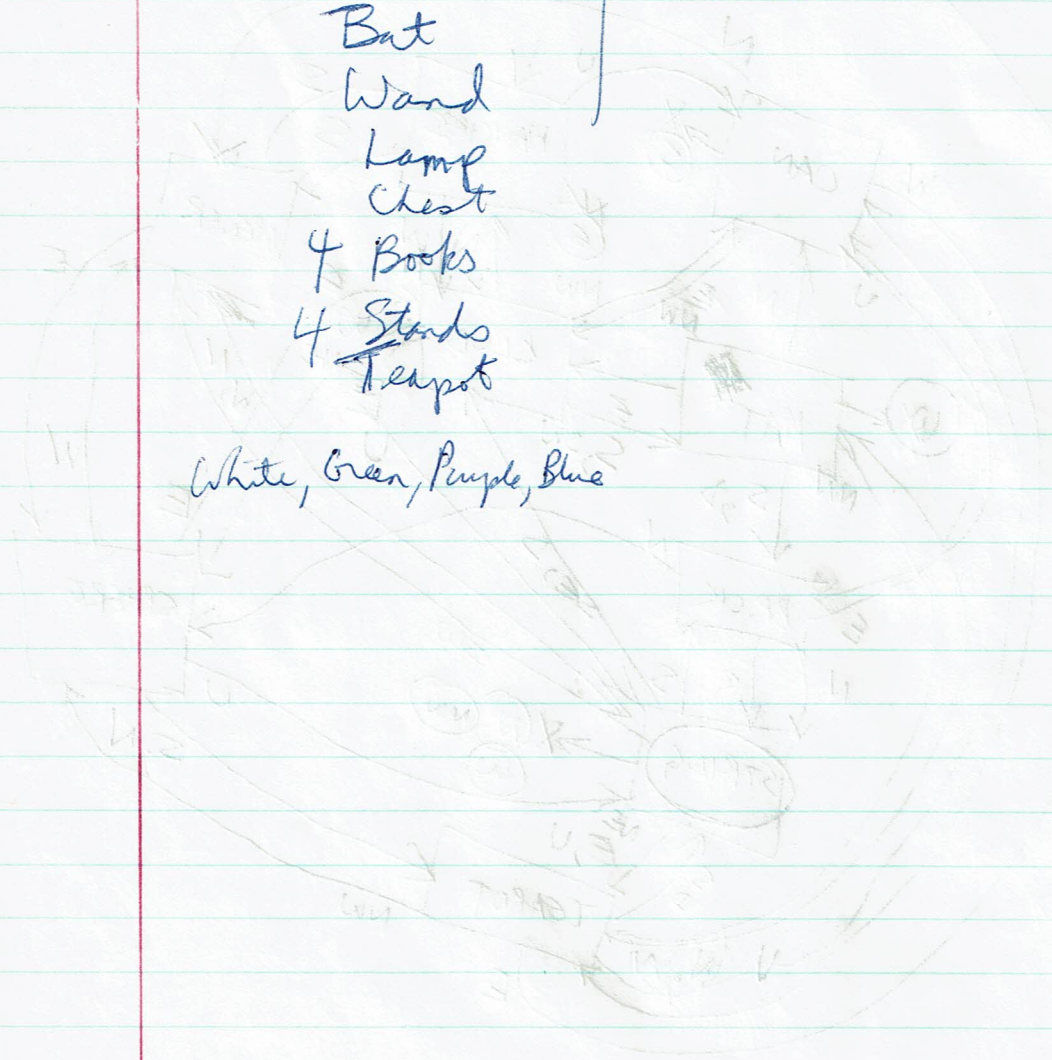 Bat
Wand
Lamp
Chest
4 Books
4 Stands
Teapot
White, Green, Purple, Blue